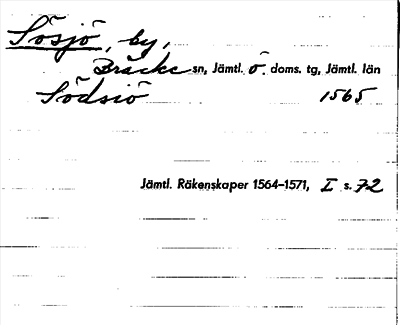 Sösjö, by,
Bräcke sn, Jämtl. ö. doms. tg, Jämtl. län
Södsiö 1565
Jämtl. Räkenskaper 1564–1571, I s. 72